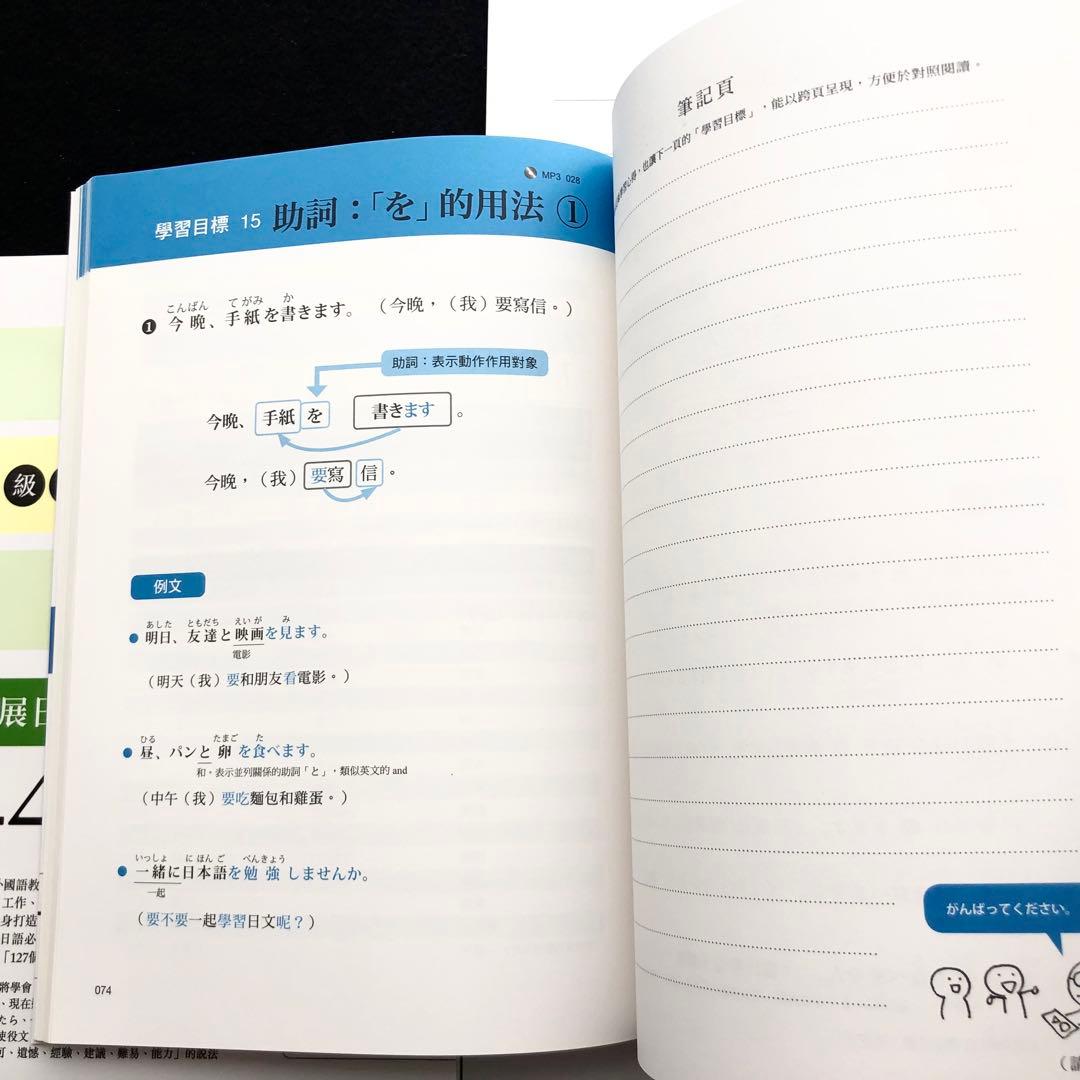 MP3 028
學習目標 15 助詞：「を」的用法 ①
こんばん てがみ か
❶ 今晚、手紙を書きます。 （今晚，（我）要寫信。）
助詞：表示動作作用對象
今晚、手紙を 書きます。
今晚，（我）要寫信。
例文
あした ともだち えいが み
明日、友達と映画を見ます。
電影
（明天（我）要和朋友看電影。）
ひる たまご た
昼、パンと卵を食べます。
和。表示並列關係的助詞「と」，類似英文的 and
（中午（我）要吃麵包和雞蛋。）
いっしょ にほんご べんきょう
一緒に日本語を勉強しませんか。
一起
（要不要一起學習日文呢？）
074
筆記頁
也讓下一頁的「學習目標」，能以跨頁呈現，方便於對照閱讀。
がんばってください。
級
展日
國語教
工作、
身打造
日語必
「127個
將學會
、現在
たら、
使役文
可、遺憾、經驗、建議、難易、能力」的說法